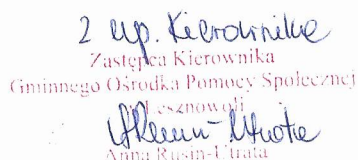 z up. Kierownika
Zastępca Kierownika
Gminnego Ośrodka Pomocy Społecznej
Lesznowoli
ARusin-Utrata
Anna Rusin-Utrata